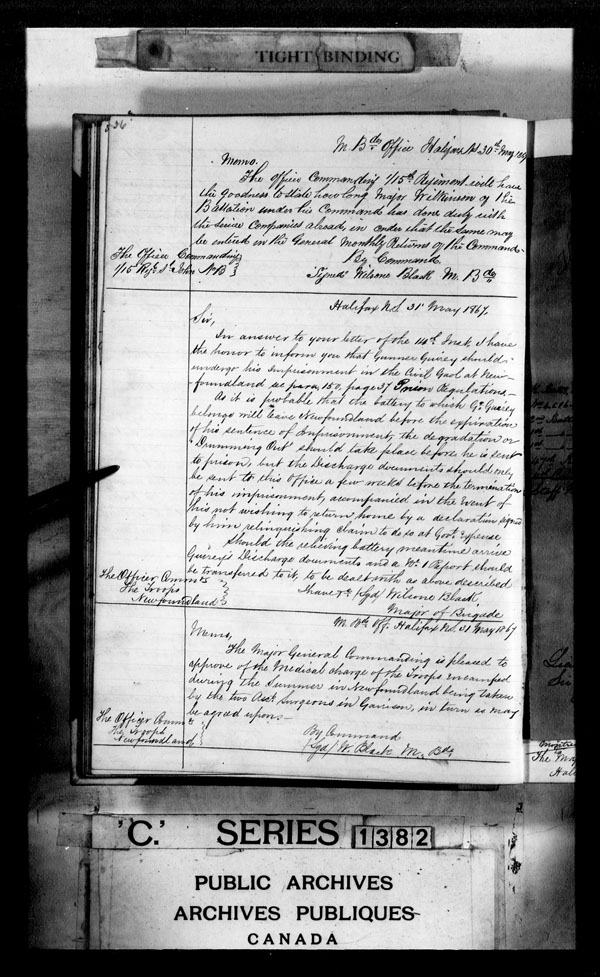 TIGHT BINDING
336
M. Bde Office Halifax NS 30th May 1867
Memo.
The Officer Commanding 1/15th Regiment will have
the goodness to state how long Major Wilkinson of the
Battalion under his Command has done duty with
the Service Companies abroad, in order that the same may
be entered in the General Monthly Returns of the Command.
By Command
The Officer Commanding
1/15 Regt St John NB
Signed Wilsone Black M. Bde
Halifax NS 31st May 1867.
Sir,
In answer to your letter of the 14th Inst. I have
the honor to inform you that Gunner Guirey should
undergo his Imprisonment in the Civil Gaol at New-
foundland see para 150, page 37 Prison Regulations
As it is probable that the battery to which Gr Guirey
belongs will leave Newfoundland before the expiration
of his sentence of Imprisonment, the degradation or
"Drumming Out" should take place before he is sent
to prison, but the Discharge documents should only
be sent to this Office a few weeks before the termination
of his imprisonment, accompanied in the event of
his not wishing to return home by a declaration signed
by him relinquishing claim to do so at Govt expense
Should the relieving battery meantime arrive
Guirey's Discharge documents and a Report should
be transferred to it, to be dealt with as above described
The Officer Commg
The Troops
Newfoundland
I have &c (Sgd) Wilsone Black
Major of Brigade
M. Bde Off. Halifax NS 31 May 1867
Memo,
The Major General Commanding is pleased to
approve of the Medical charge of the Troops encamped
during the Summer in Newfoundland being taken
by the two Asst Surgeons in Garrison, in turn as may
be agreed upon.
The Officer Commg
The Troops
Newfoundland
By Command
(Sgd) W. Black M. Bde
'C.' SERIES 1382
PUBLIC ARCHIVES
ARCHIVES PUBLIQUES
CANADA